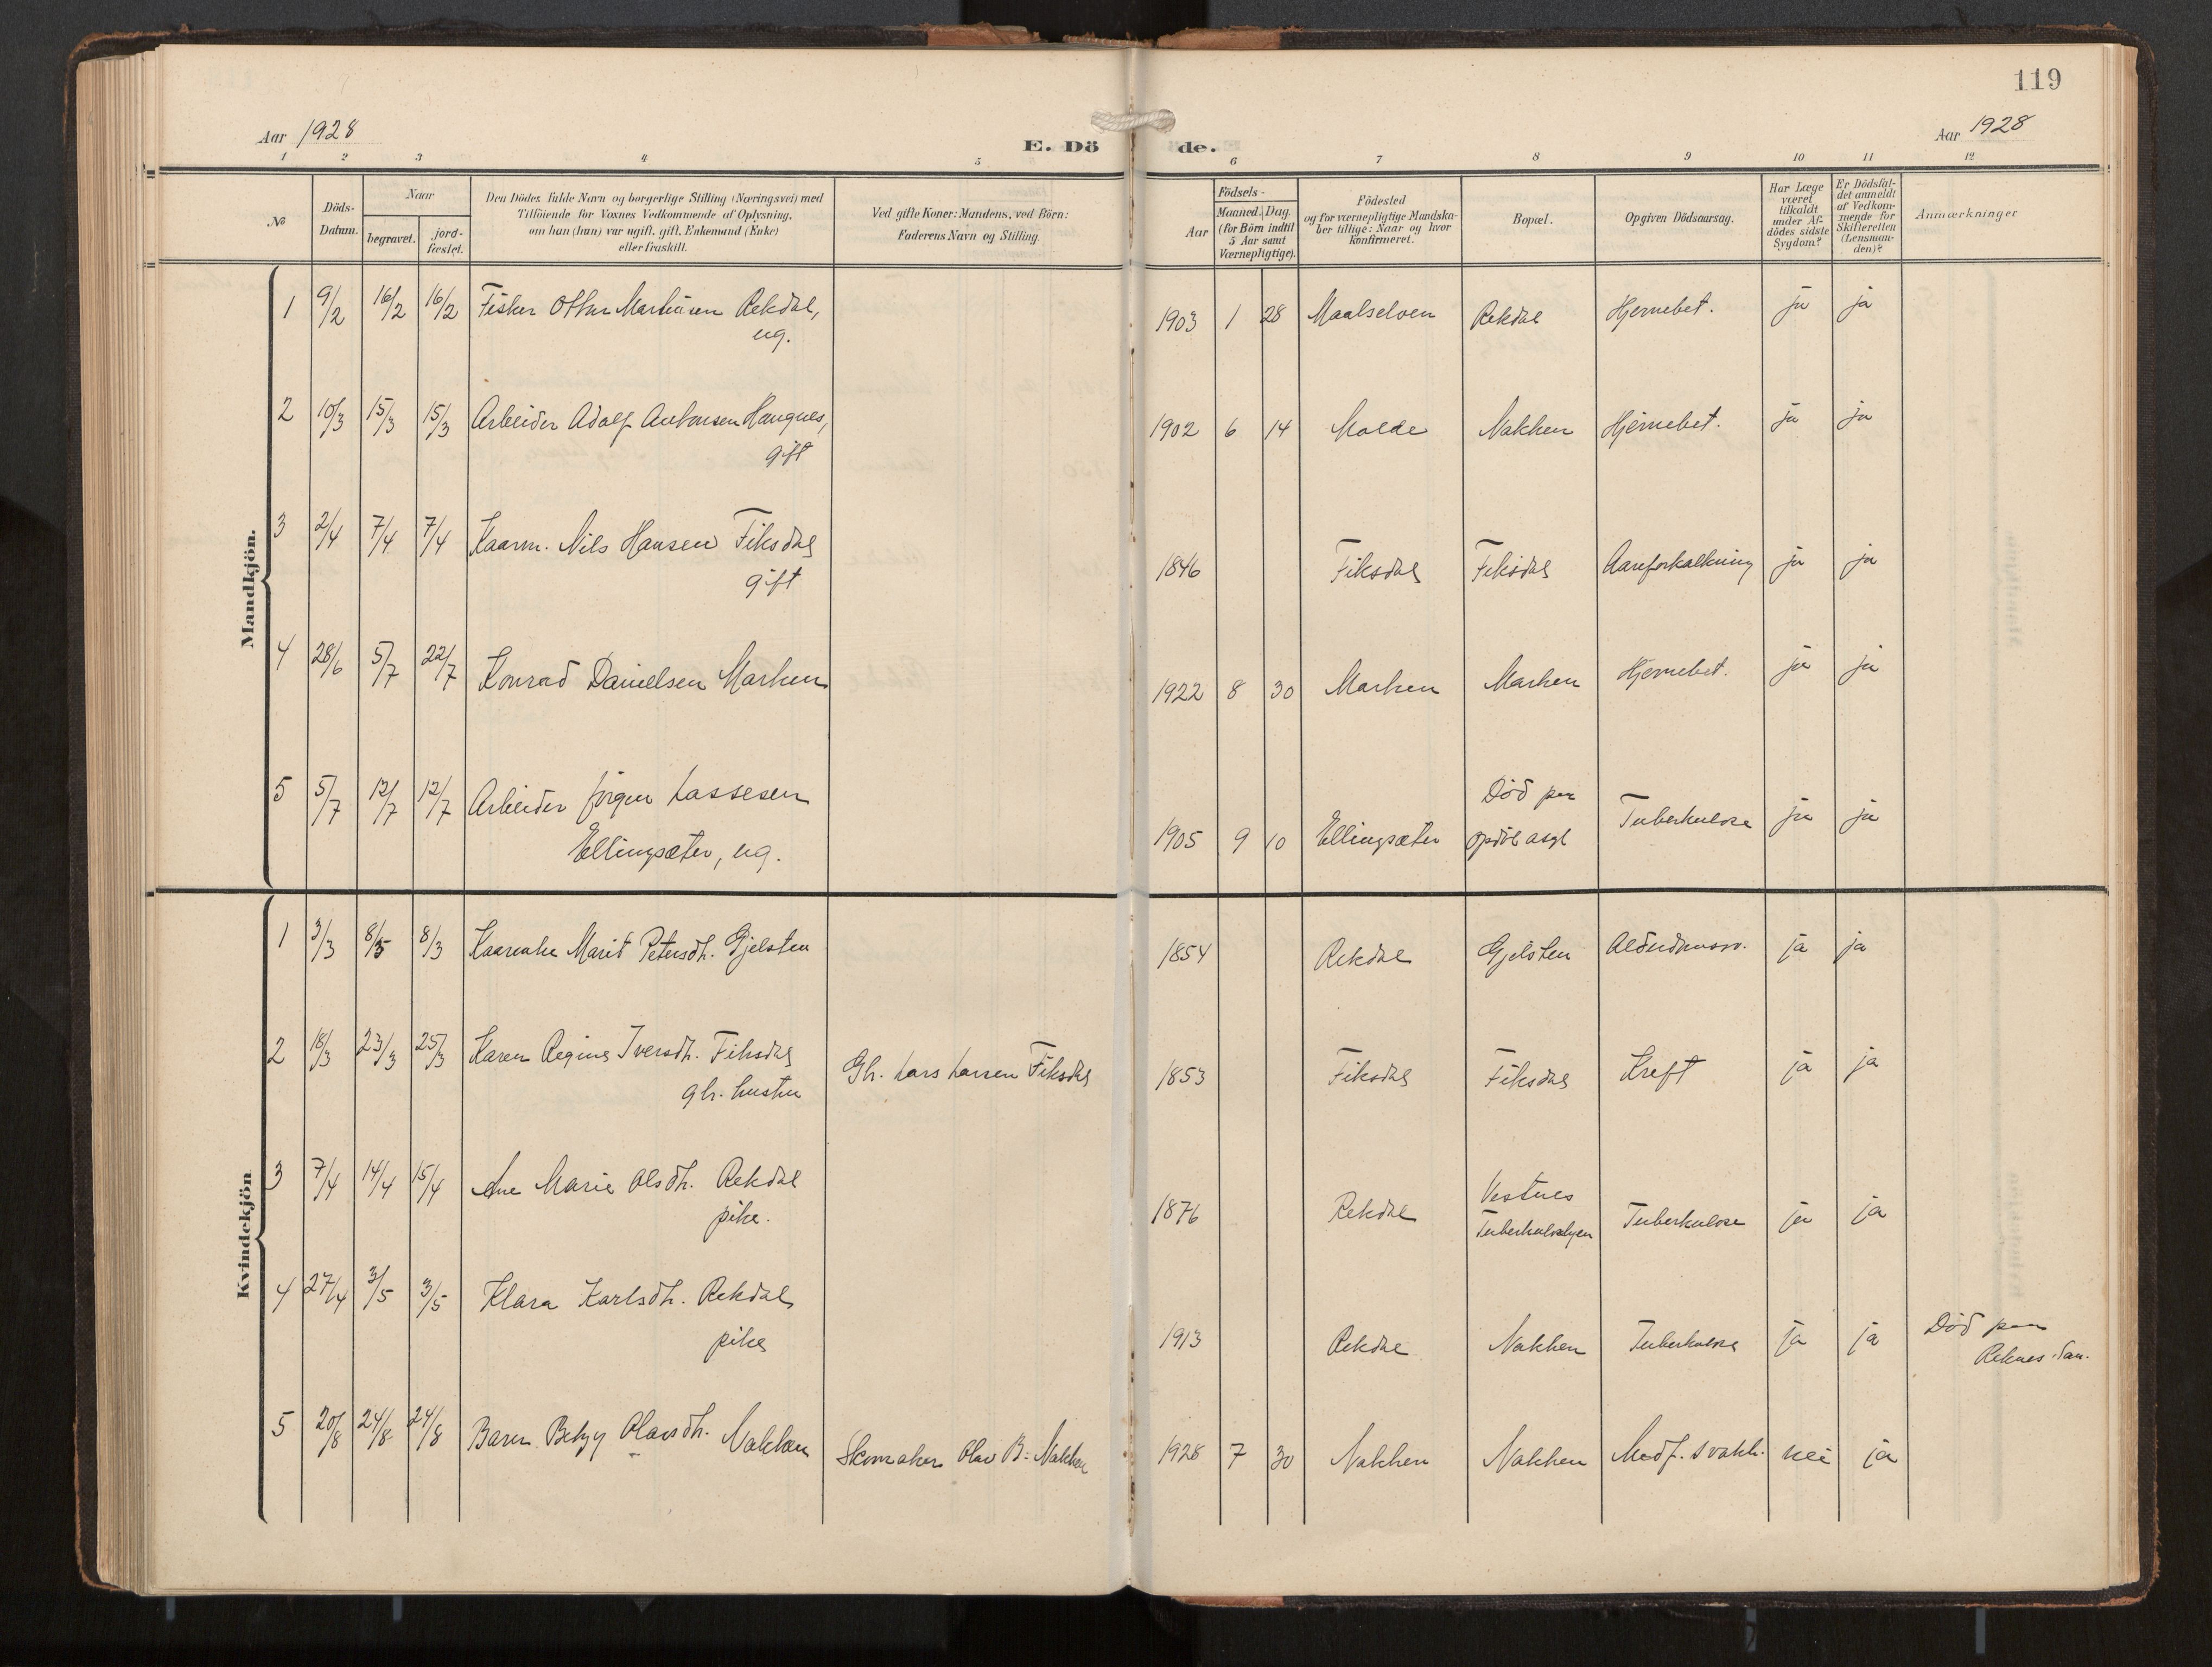 119
Aar 1928
Aar 1928
E. Dö
de.
1 2 3 4 5 6 7 8 9 10 11 12
No
Döds-
Datum.
Naar
begravet.
jord-
fæstet.
Den Dödes fulde Navn og borgerlige Stilling (Næringsvei) med
Tilföiende for Voxnes Vedkommende af Oplysning,
om han (hun) var ugift, gift, Enkemand (Enke)
eller fraskilt.
Ved gifte Koner: Mandens, ved Börn:
Faderens Navn og Stilling.
Födsels-
Aar
Maaned. Dag.
(for Börn indtil
5 Aar samt
Værnepligtige).
Födested
og for værnepligtige Mandska-
ber tillige: Naar og hvor
konfirmeret.
Bopæl.
Opgiven Dödsaarsag.
Har Læge
været
tilkaldt
under Af-
dödes sidste
Sygdom?
Er Dödsfal-
det anmeldt
af Vedkom-
mende for
Skifteretten
(Lensman-
den)?
Anmærkninger
Mandkjön.
1 9/2 16/2 16/2 Fisker Othar Martinsen Rekdal, 1903 1 28 Maalselven Rekdal Hjernebet. ja ja
ug.
2 10/3 15/3 15/3 Arbeider Adolf Antonsen Haugnes, 1902 6 14 Molde Nakken Hjernebet. ja ja
gift
3 2/4 7/4 7/4 Kaarm. Nils Hansen Fiksdal 1846 Fiksdal Fiksdal Aareforkalkning ja ja
gift
4 28/6 5/7 22/7 Konrad Danielsen Marken 1922 8 30 Marken Marken Hjernebet. ja ja
5 5/7 12/7 12/7 Arbeider Jörgen Lassesen Död paa
Ellingsæter, ug. 1905 9 10 Ellingsæter Opdöl Tuberkulose ja ja
Kvindekjön
1 3/3 8/3 8/3 Kaarenke Marit Petersdt. Gjelsten 1854 Rekdal Gjelsten ja ja
2 18/3 23/3 25/3 Karen Regine Iversdt. Fiksdal Gbr. Lars Larsen Fiksdal 1853 Fiksdal Fiksdal Kreft ja ja
gbr. hustru
3 7/4 14/4 15/4 Ane Marie Olsdt. Rekdal Vestnes
pike. 1876 Rekdal Tuberkulose ja ja
4 27/4 3/5 3/5 Klara Karlsdt. Rekdal Död paa
pike 1913 Rekdal Nakken Tuberkulose ja ja Reknes San.
5 20/8 24/8 24/8 Barn Betzy Olavsdt. Nakken Skomaker Olav B. Nakken 1928 7 30 Nakken Nakken Medf. svakh. nei ja